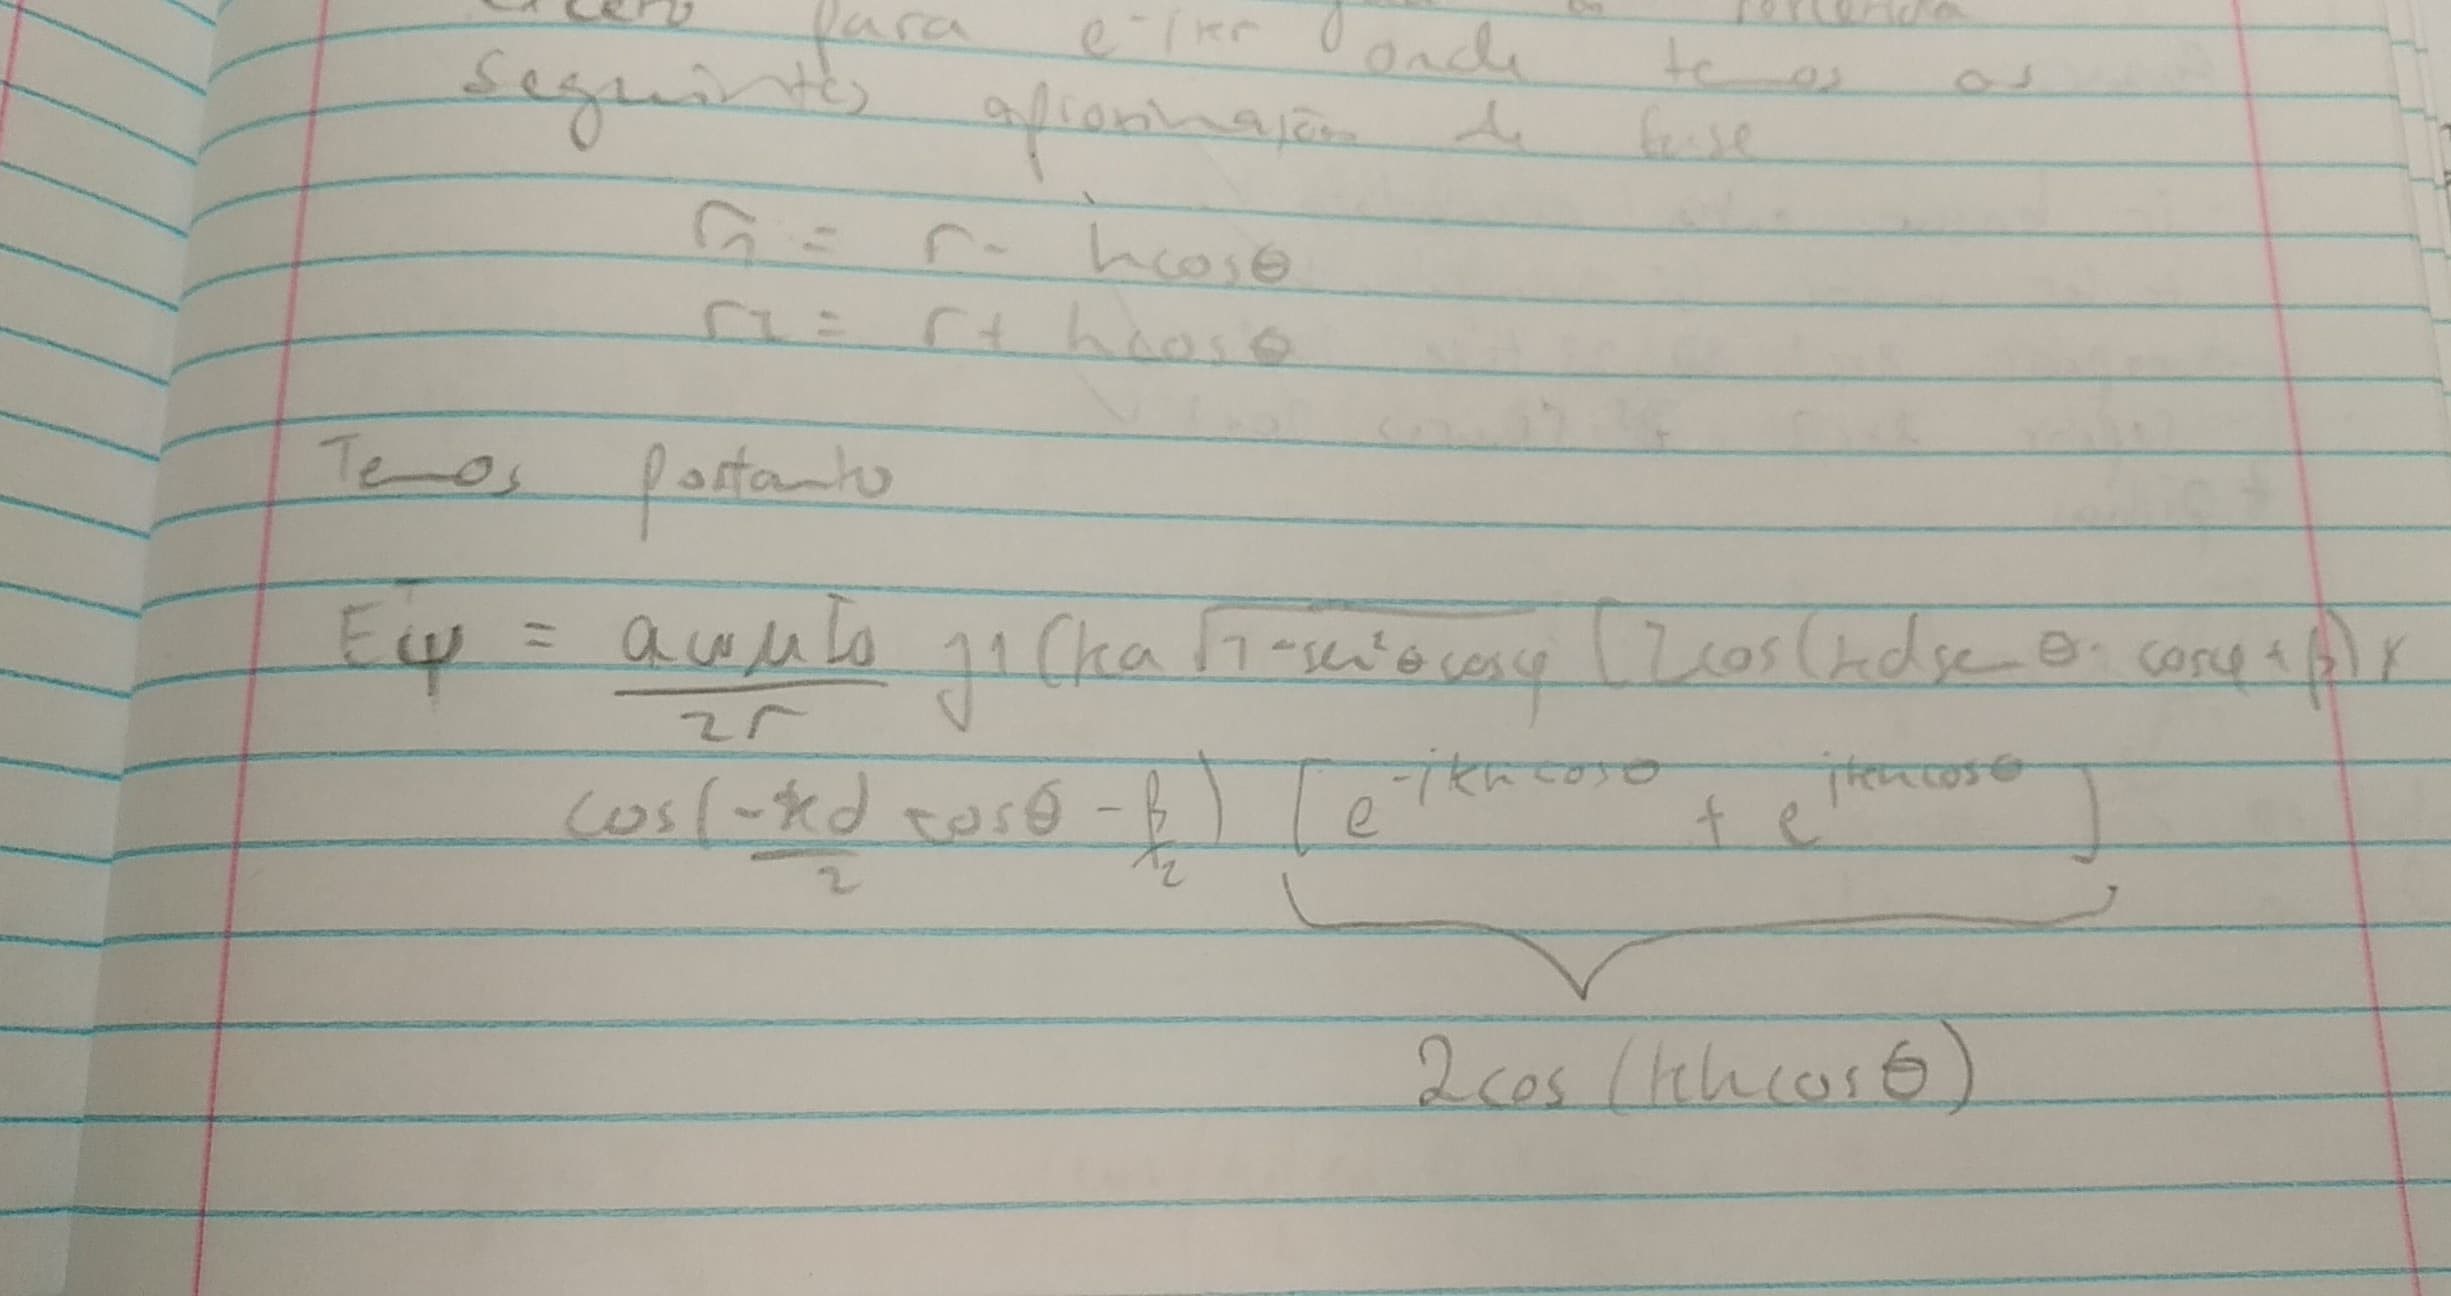 para e^-jkr onde temos as
seguintes aproximação de fase
r1 = r - hcosθ
r2 = r + hcosθ
Temos portanto
Eψ = aωμI0/2r J1(ka√1-sen²θcosφ [2cos(kdsenθ·cosφ+β)x
cos(-kd/2 cosθ - β/2) [e^-jkhcosθ + e^jkhcosθ]
2cos(khcosθ)